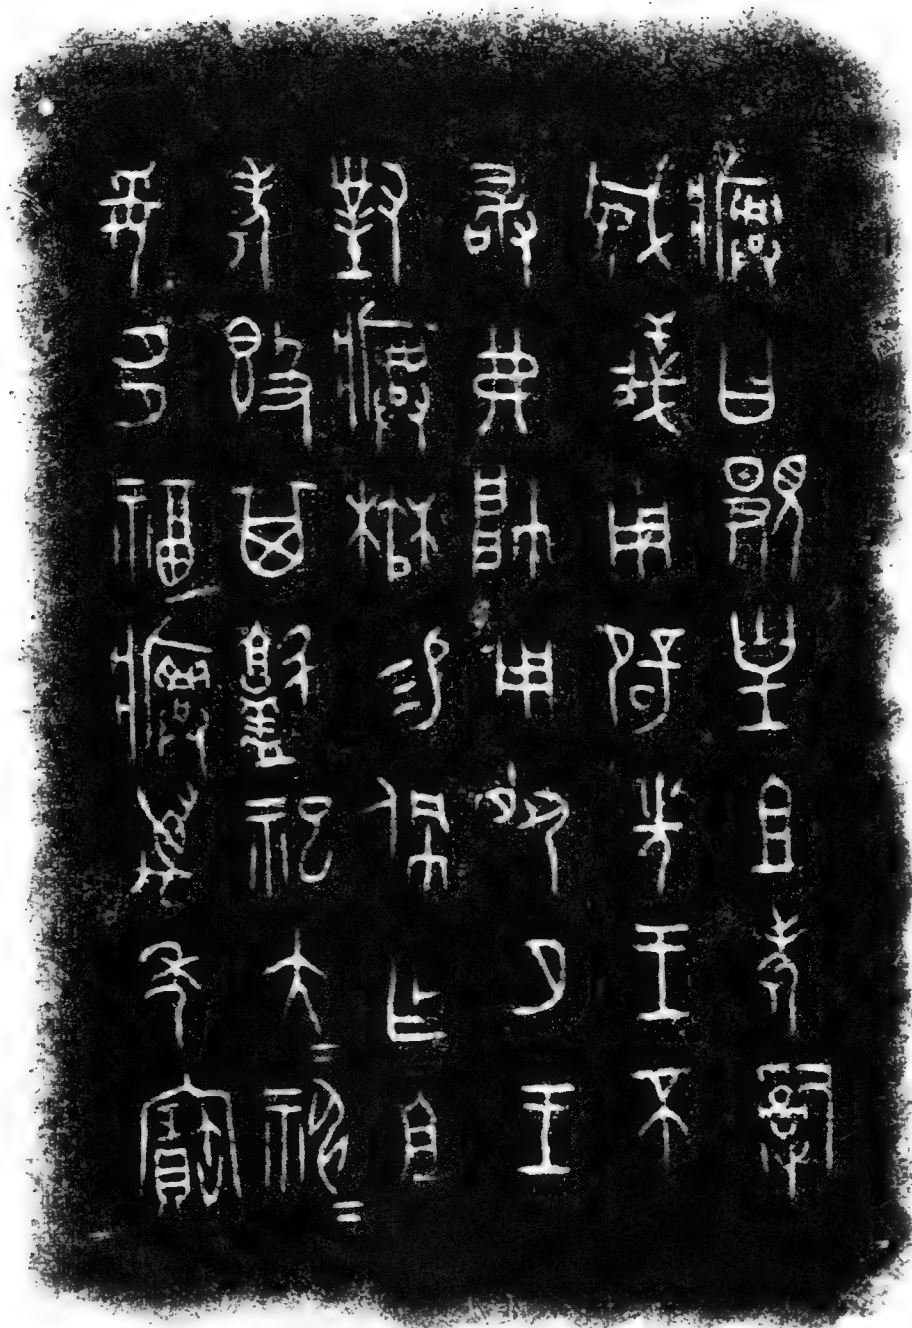 𤼈曰顯皇且考嗣
威義用辟先王不
敢弗帥用夙夕王
對𤼈楙易佩乍且
考簋其䵼祀大=神=
妥多福𤼈萬年寶